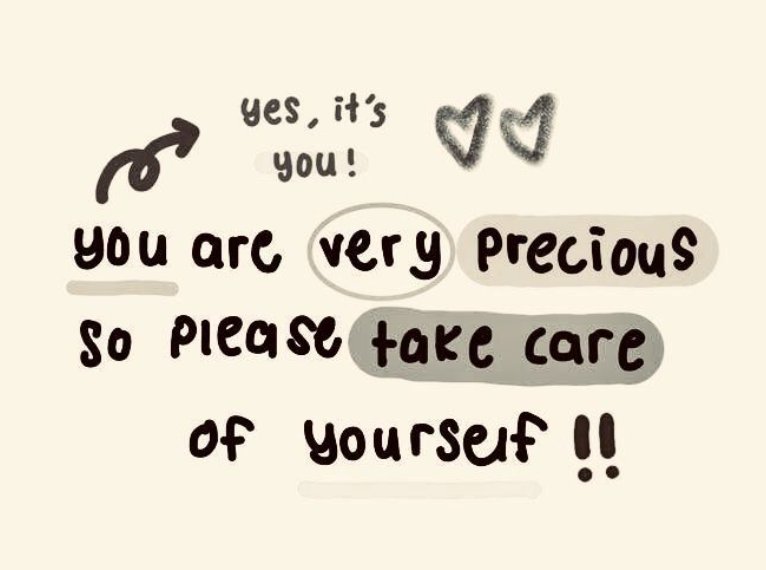 yes, it's
you!
you are very precious
so please take care
of yourself !!